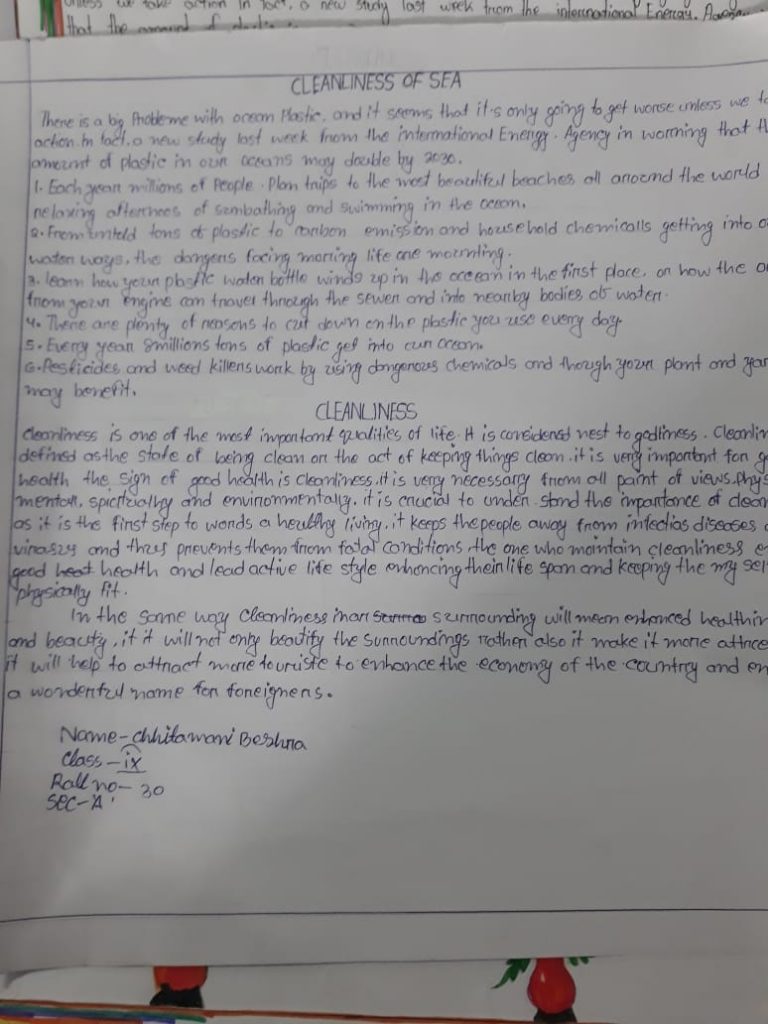 unless we take action in fact, a new study last week from the international Energy. Agen
that the amount of
CLEANLINESS OF SEA
There is a big Probleme with ocean Plastic. and it seems that it's only going to get worse unless we ta
action. In fact, a new study last week from the international Energy. Agency in worming that th
amount of plastic in our oceans may double by 2030.
1. Each year millions of People. Plan trips to the most beautiful beaches all around the world
relaxing afternoes of sunbathing and swimming in the ocean.
2. From untold tons of plastic to carbon emission and household chemicalls getting into o
water ways, the dangers facing marring life are mounting.
3. learn how your plastic water bottle winds up in the oceean in the first place, or how the o
from your engine can travel through the sewer and into nearby bodies of water.
4. There are plenty of reasons to cut down on the plastic you use every day
5. Every year 8millions tons of plastic get into our ocean.
6. Pesticides and weed killers work by using dangerous chemicals and though your plant and gar
may benefit.
CLEANLINESS
Cleanliness is one of the most important qualities of life. It is considered nest to godliness. Cleanlin
defined as the state of being clean or the act of keeping things clean. it is very important for g
health the sign of good health is cleanliness. it is very necessary from all paint of views. Phys
mentall, spirtually and environmentaly. it is crucial to under stand the importance of clean
as it is the first step to words a healthy living. it keeps the people away from infectias diseases a
viruszs and thus prevents them from fatal conditions .the one who maintain cleanliness e
good heat health and lead active life style enhancing their life span and keeping the my sel
physically fit.
In the same way Cleanliness in our surrounding will mean enhanced healthin
and beauty. it it will not only beautify the surroundings rather also it make it more attrace
it will help to attract more touriste to enhance the economy of the country and en
a wonderful name for foreigners.
Name - Chhitamani Beshra
Class - ix
Roll no - 30
SEC - A